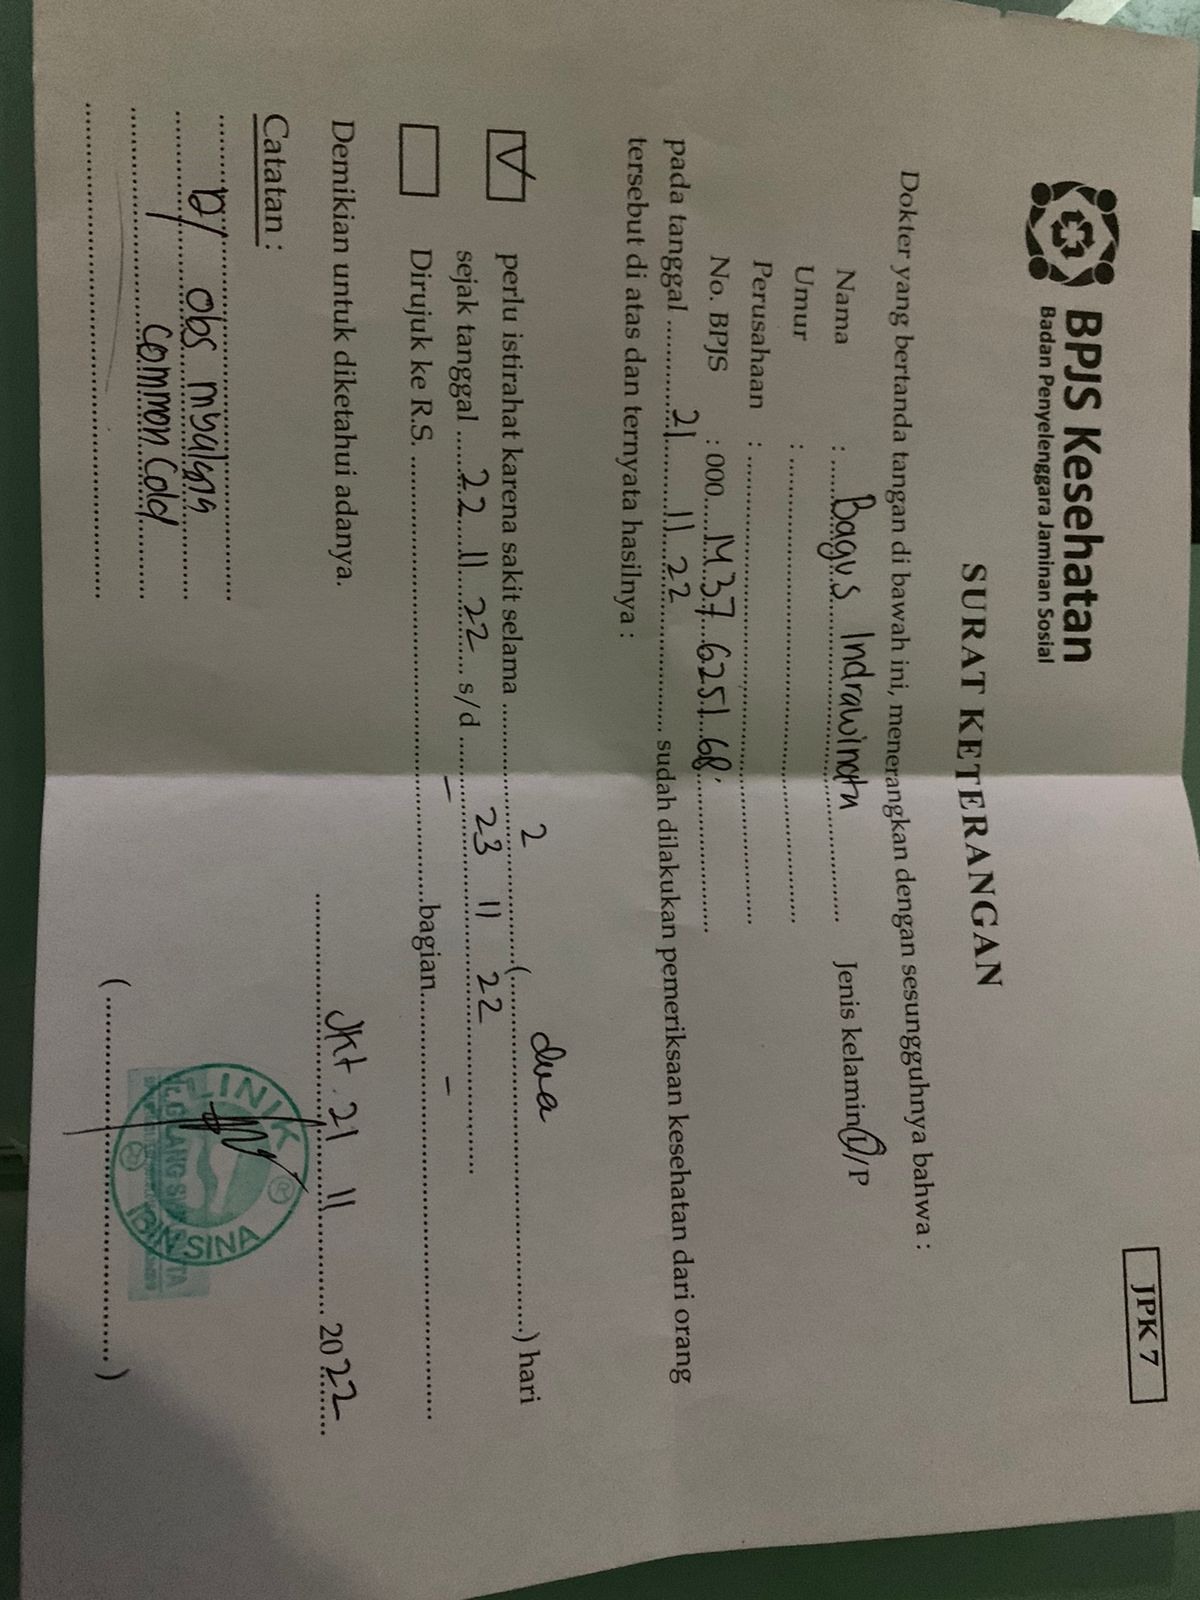 BPJS Kesehatan
Badan Penyelenggara Jaminan Sosial
JPK 7
SURAT KETERANGAN
Dokter yang bertanda tangan di bawah ini, menerangkan dengan sesungguhnya bahwa :
Nama : Bagus Indrawinatu Jenis kelamin L/P
Umur :
Perusahaan :
No. BPJS : 000 1437 6251 68
pada tanggal 21 11 22 sudah dilakukan pemeriksaan kesehatan dari orang
tersebut di atas dan ternyata hasilnya :
V perlu istirahat karena sakit selama 2 ( dua ) hari
sejak tanggal 22 11 22 s/d 23 11 22
Dirujuk ke R.S. – bagian –
Demikian untuk diketahui adanya.
Jkt. 21 11 2022
Catatan :
D/ obs myalgia
common cold
KLINIK
IBNU SINA
( )